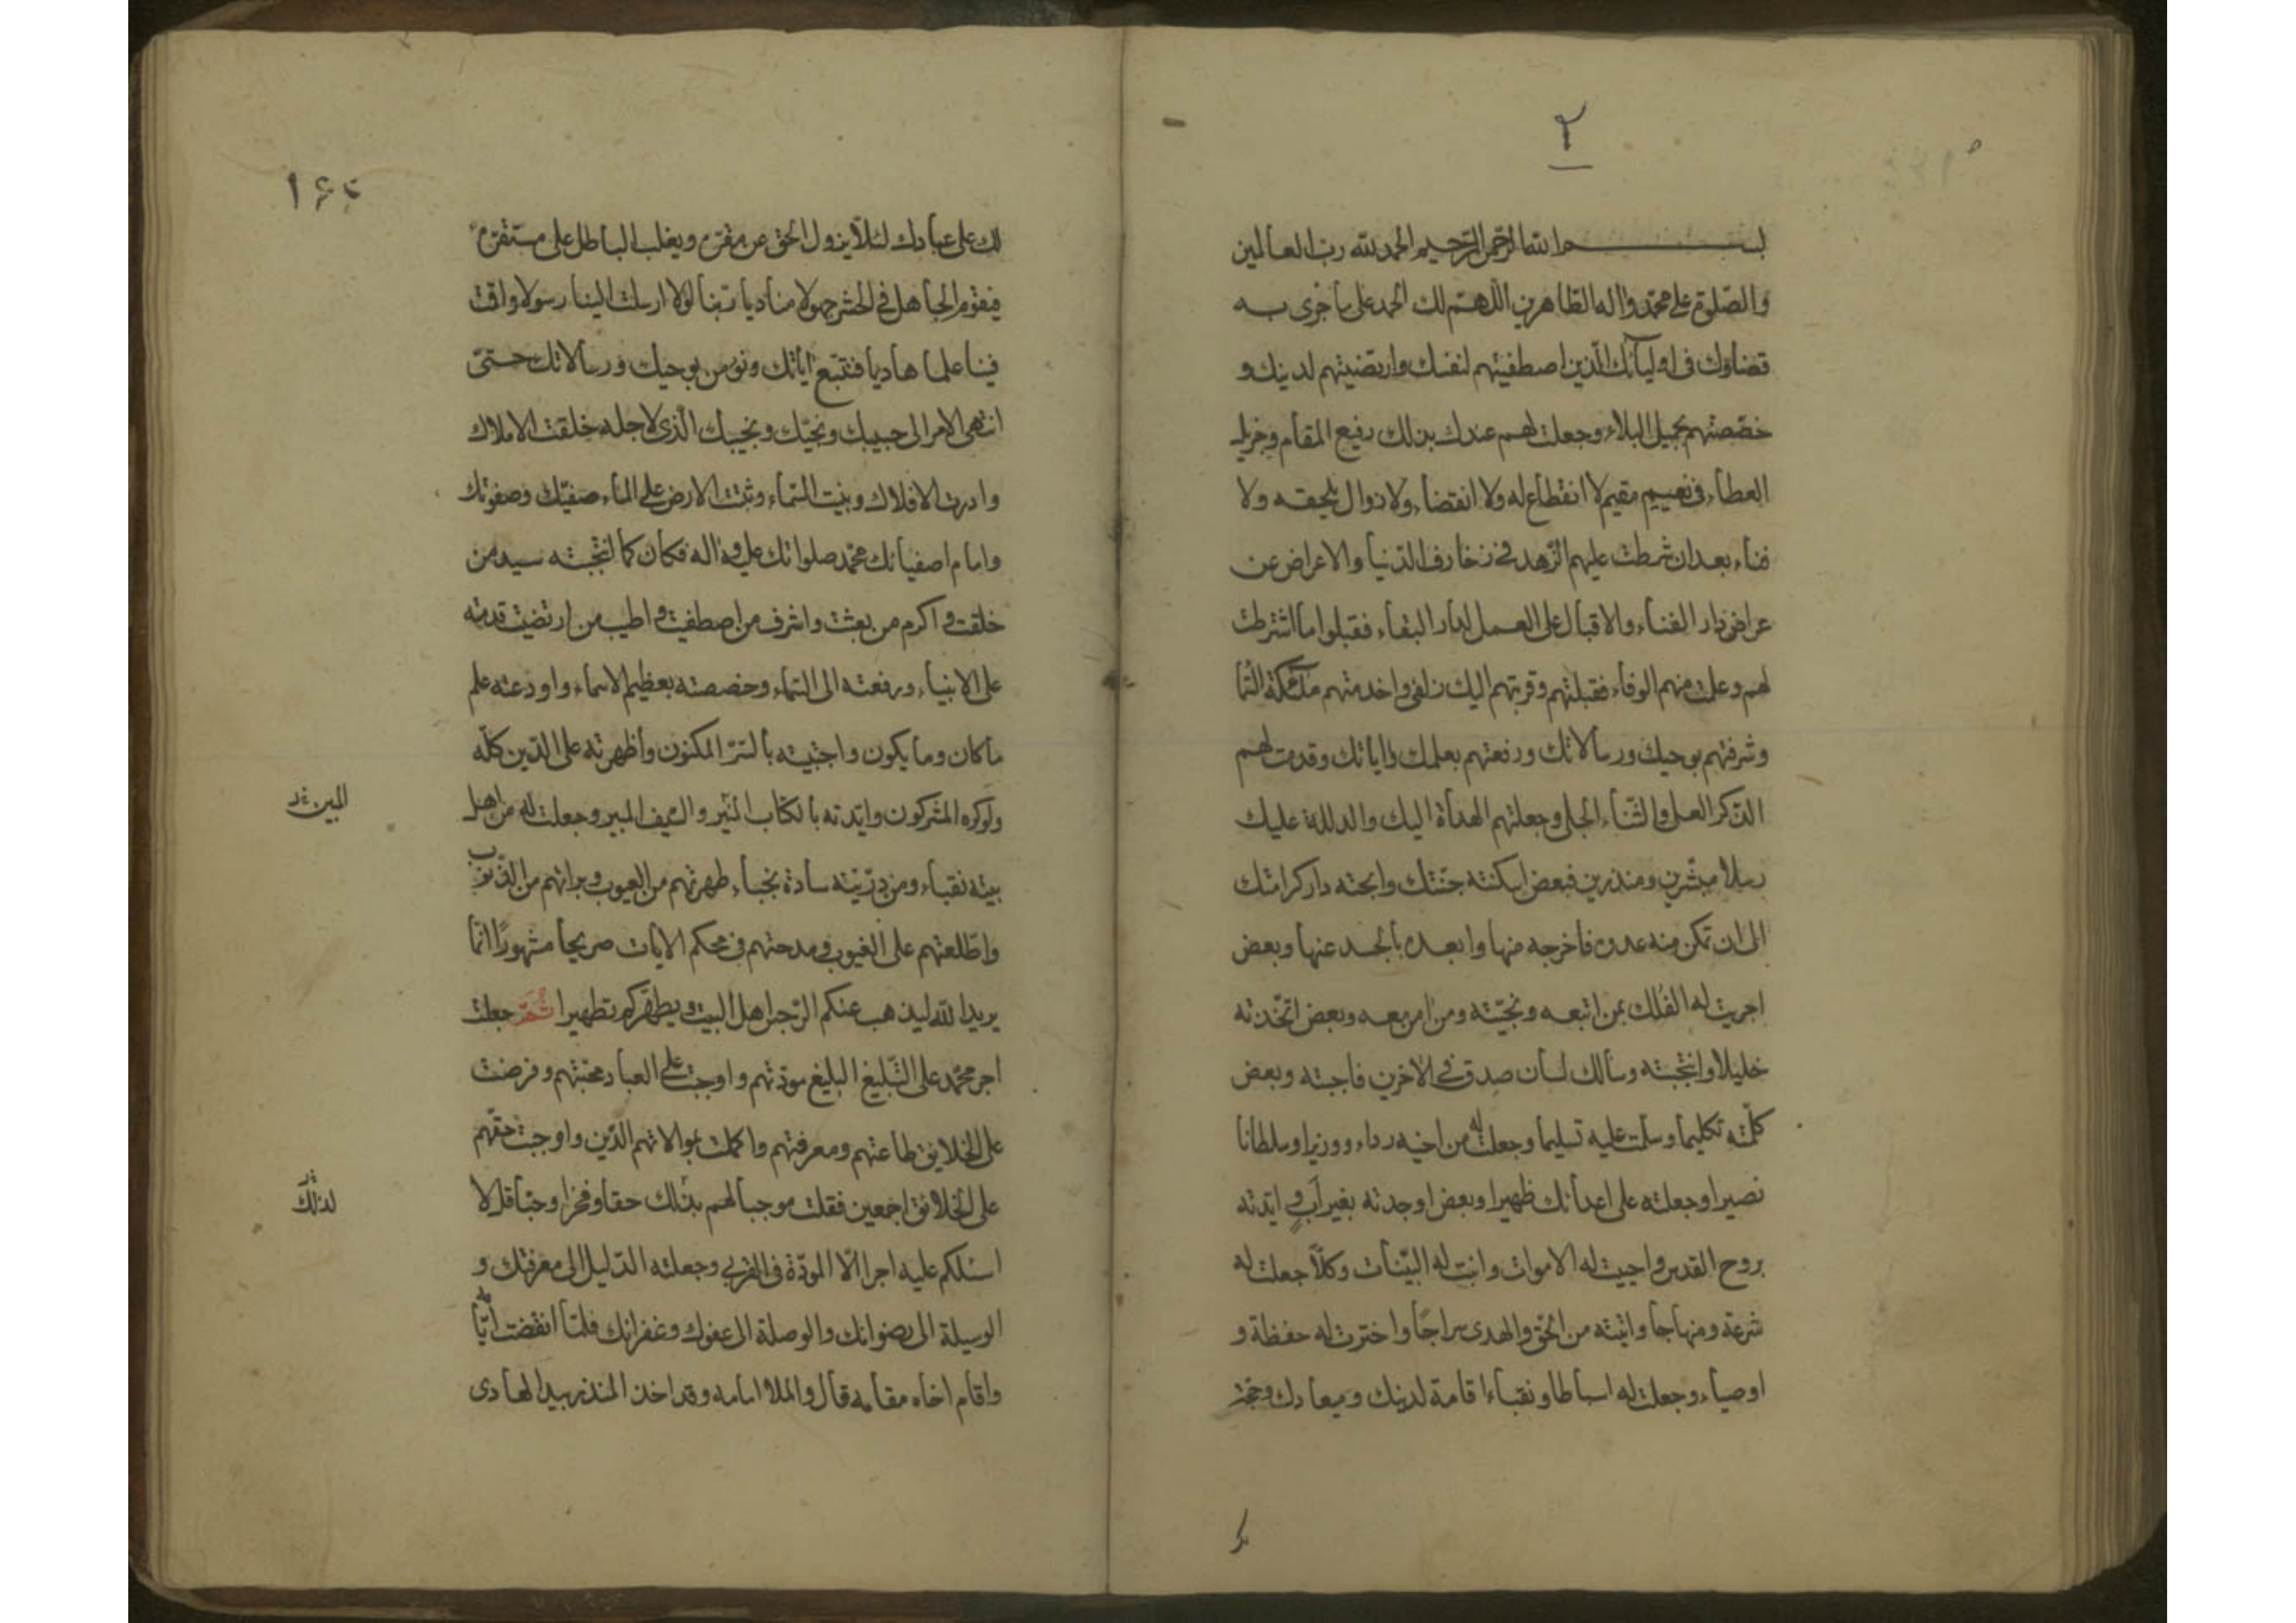 ٢
بسم الله الرحمن الرحيم الحمد لله رب العالمين
والصلوة على محمد واله الطاهرين اللهم لك الحمد على ما جرى به
قضاؤك فى اوليائك الذين اصطفيتهم لنفسك وارتضيتهم لدينك و
خصصتهم بجميل البلاء وجعلت لهم عندك بذلك رفيع المقام وجزيل
العطاء فى نعيم مقيم لا انقطاع له ولا انقضاء ولا زوال يلحقه ولا
فناء بعد ان شرطت عليهم الزهد فى زخارف الدنيا والاعراض عن
عراض دار الفناء والاقبال على العمل لدار البقاء فقبلوا ما اشترطت
لهم وعلمت منهم الوفاء فقبلتهم وقربتهم اليك زلفى واخدمتهم ملئكة السما
وشرفتهم بوحيك ورسالاتك ورفعتهم بعلمك واياتك وقدمت لهم
الذكر العلى والثناء الجلى وجعلتهم الهداة اليك والدللة عليك
رسلا مبشرين ومنذرين فبعض اسكنته جنتك وابحته دار كرامتك
الى ان تمكن منه عدوه فاخرجه منها وابعده بالحسد عنها وبعض
اجريت له الفلك بمن اتبعه ونجيته ومن امن معه وبعض اتخذته
خليلا وانتجبته وسالك لسان صدق فى الاخرين فاجبته وبعض
كلمته تكليما وسلمت عليه تسليما وجعلت له من اخيه رداء ووزيرا وسلطانا
نصيرا وجعلته على اعدائك ظهيرا وبعض اوجدته بغير اب و ايدته
بروح القدس واحييت له الاموات واتيته البينات وكلا جعلت له
شرعة ومنهاجا واتيته من الحق والهدى سراجا واخترت له حفظة و
اوصياء وجعلت له اسباطا ونقباء اقامة لدينك وميعادك وحجة
١۶۵
لك على عبادك لئلا يزول الحق عن مقره ويغلب الباطل على مستقره
فيقوم الجاهل فى الحشر جهولا مناديا ربنا لولا ارسلت الينا رسولا واقمت
فينا علما هاديا فنتبع اياتك ونؤمن بوحيك ورسالاتك حتى
انتهى الامر الى حبيبك ونجيك ونجيبك الذى لاجله خلقت الاملاك
وادرت الافلاك وبنيت السماء وثبتت الارض على الماء صفيك وصفوتك
وامام اصفيائك محمد صلواتك عليه واله فكان كما انتجبته سيد من
خلقت و اكرم من بعثت واشرف من اصطفيت واطيب من ارتضيت قدمته
على الانبياء ورفعته الى السماء وخصصته بعظيم الاسماء واودعته علم
ما كان وما يكون واجتبيته بالسر المكنون وأظهرته على الدين كله
ولو كره المشركون وايدته بالكتاب المنير والسيف المبير وجعلت له من اهل
المبين
بيته نقباء ومن ذريته سادة نجباء طهرتهم من العيوب وبراتهم من الذنوب
واطلعتهم على الغيوب ومدحتهم فى محكم الايات صريحا مشهورا انما
يريد الله ليذهب عنكم الرجس اهل البيت ويطهركم تطهيرا ثم جعلت
اجر محمد على التبليغ البليغ مودتهم واوجبت على العباد محبتهم وفرضت
على الخلايق طاعتهم ومعرفتهم واكملت بموالاتهم الدين واوجبت حقهم
على الخلائق اجمعين فقلت موجبا لهم بذلك حقا وفخرا وحبا قل لا
لذلك
اسئلكم عليه اجرا الا المودة فى القربى وجعلته الدليل الى معرفتك و
الوسيلة الى رضوانك والوصلة الى عفوك وغفرانك فلما انقضت ايامه
واقام اخاه مقامه قال والملا امامه وقد اخذ المنذر بيد الهادى